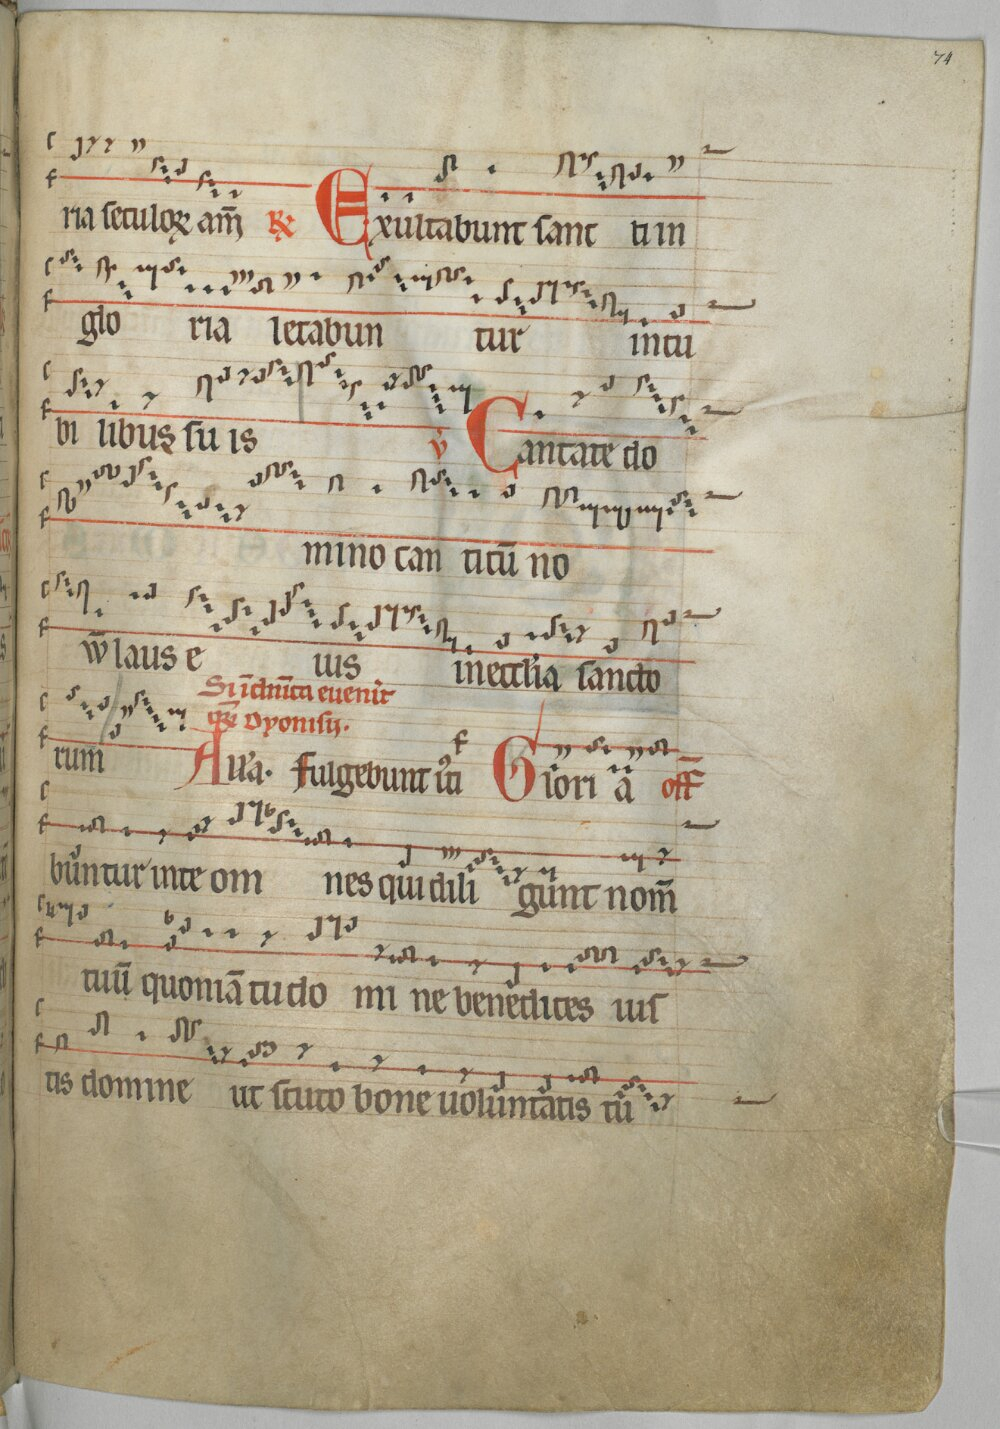 74
ria seculoꝝ am̄ R̸ Exultabunt sanc ti in
glo ria letabun tur in cu
bi libus su is v̄ Cantate do
mino can ticū no
laus e ius in eccl̄ia sancto
Si īdn̄ica euenit
Dyonisij.
rum All'a. fulgebunt iusti Glori a off̄
buntur in te om nes qui dili gunt nom̄
tuū quoniā tu do mi ne benedices ius
tis domine ut scuto bone uoluntatis tū